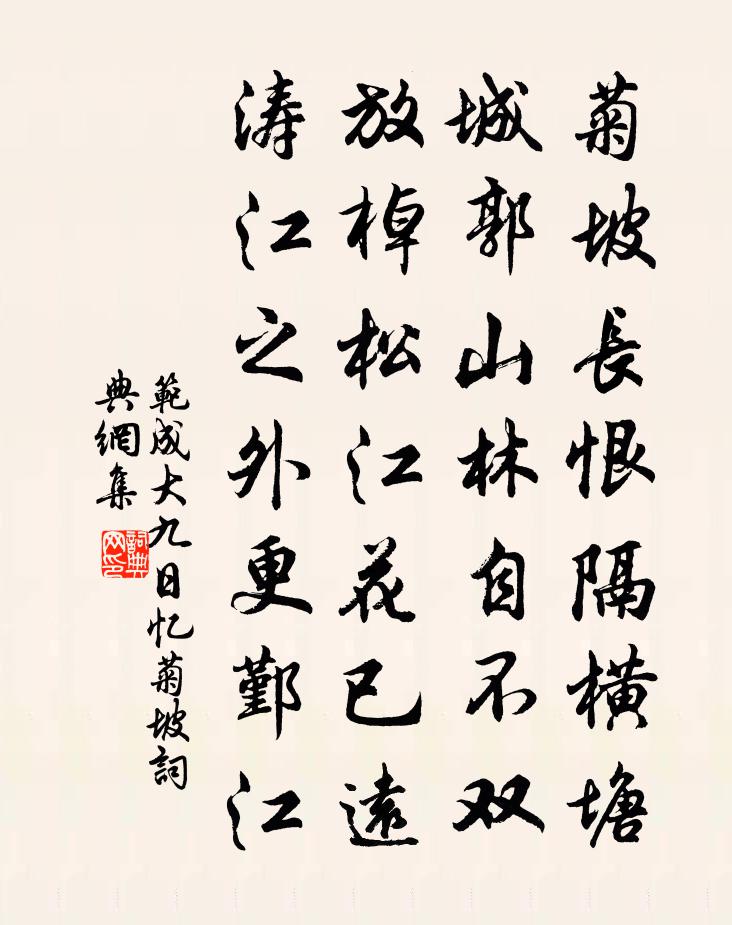 菊坡長恨隔橫塘
城郭山林自不双
放棹松江花已遠
濤江之外更鄞江
範成大九日忆菊坡詞
典網集
詞典
网印